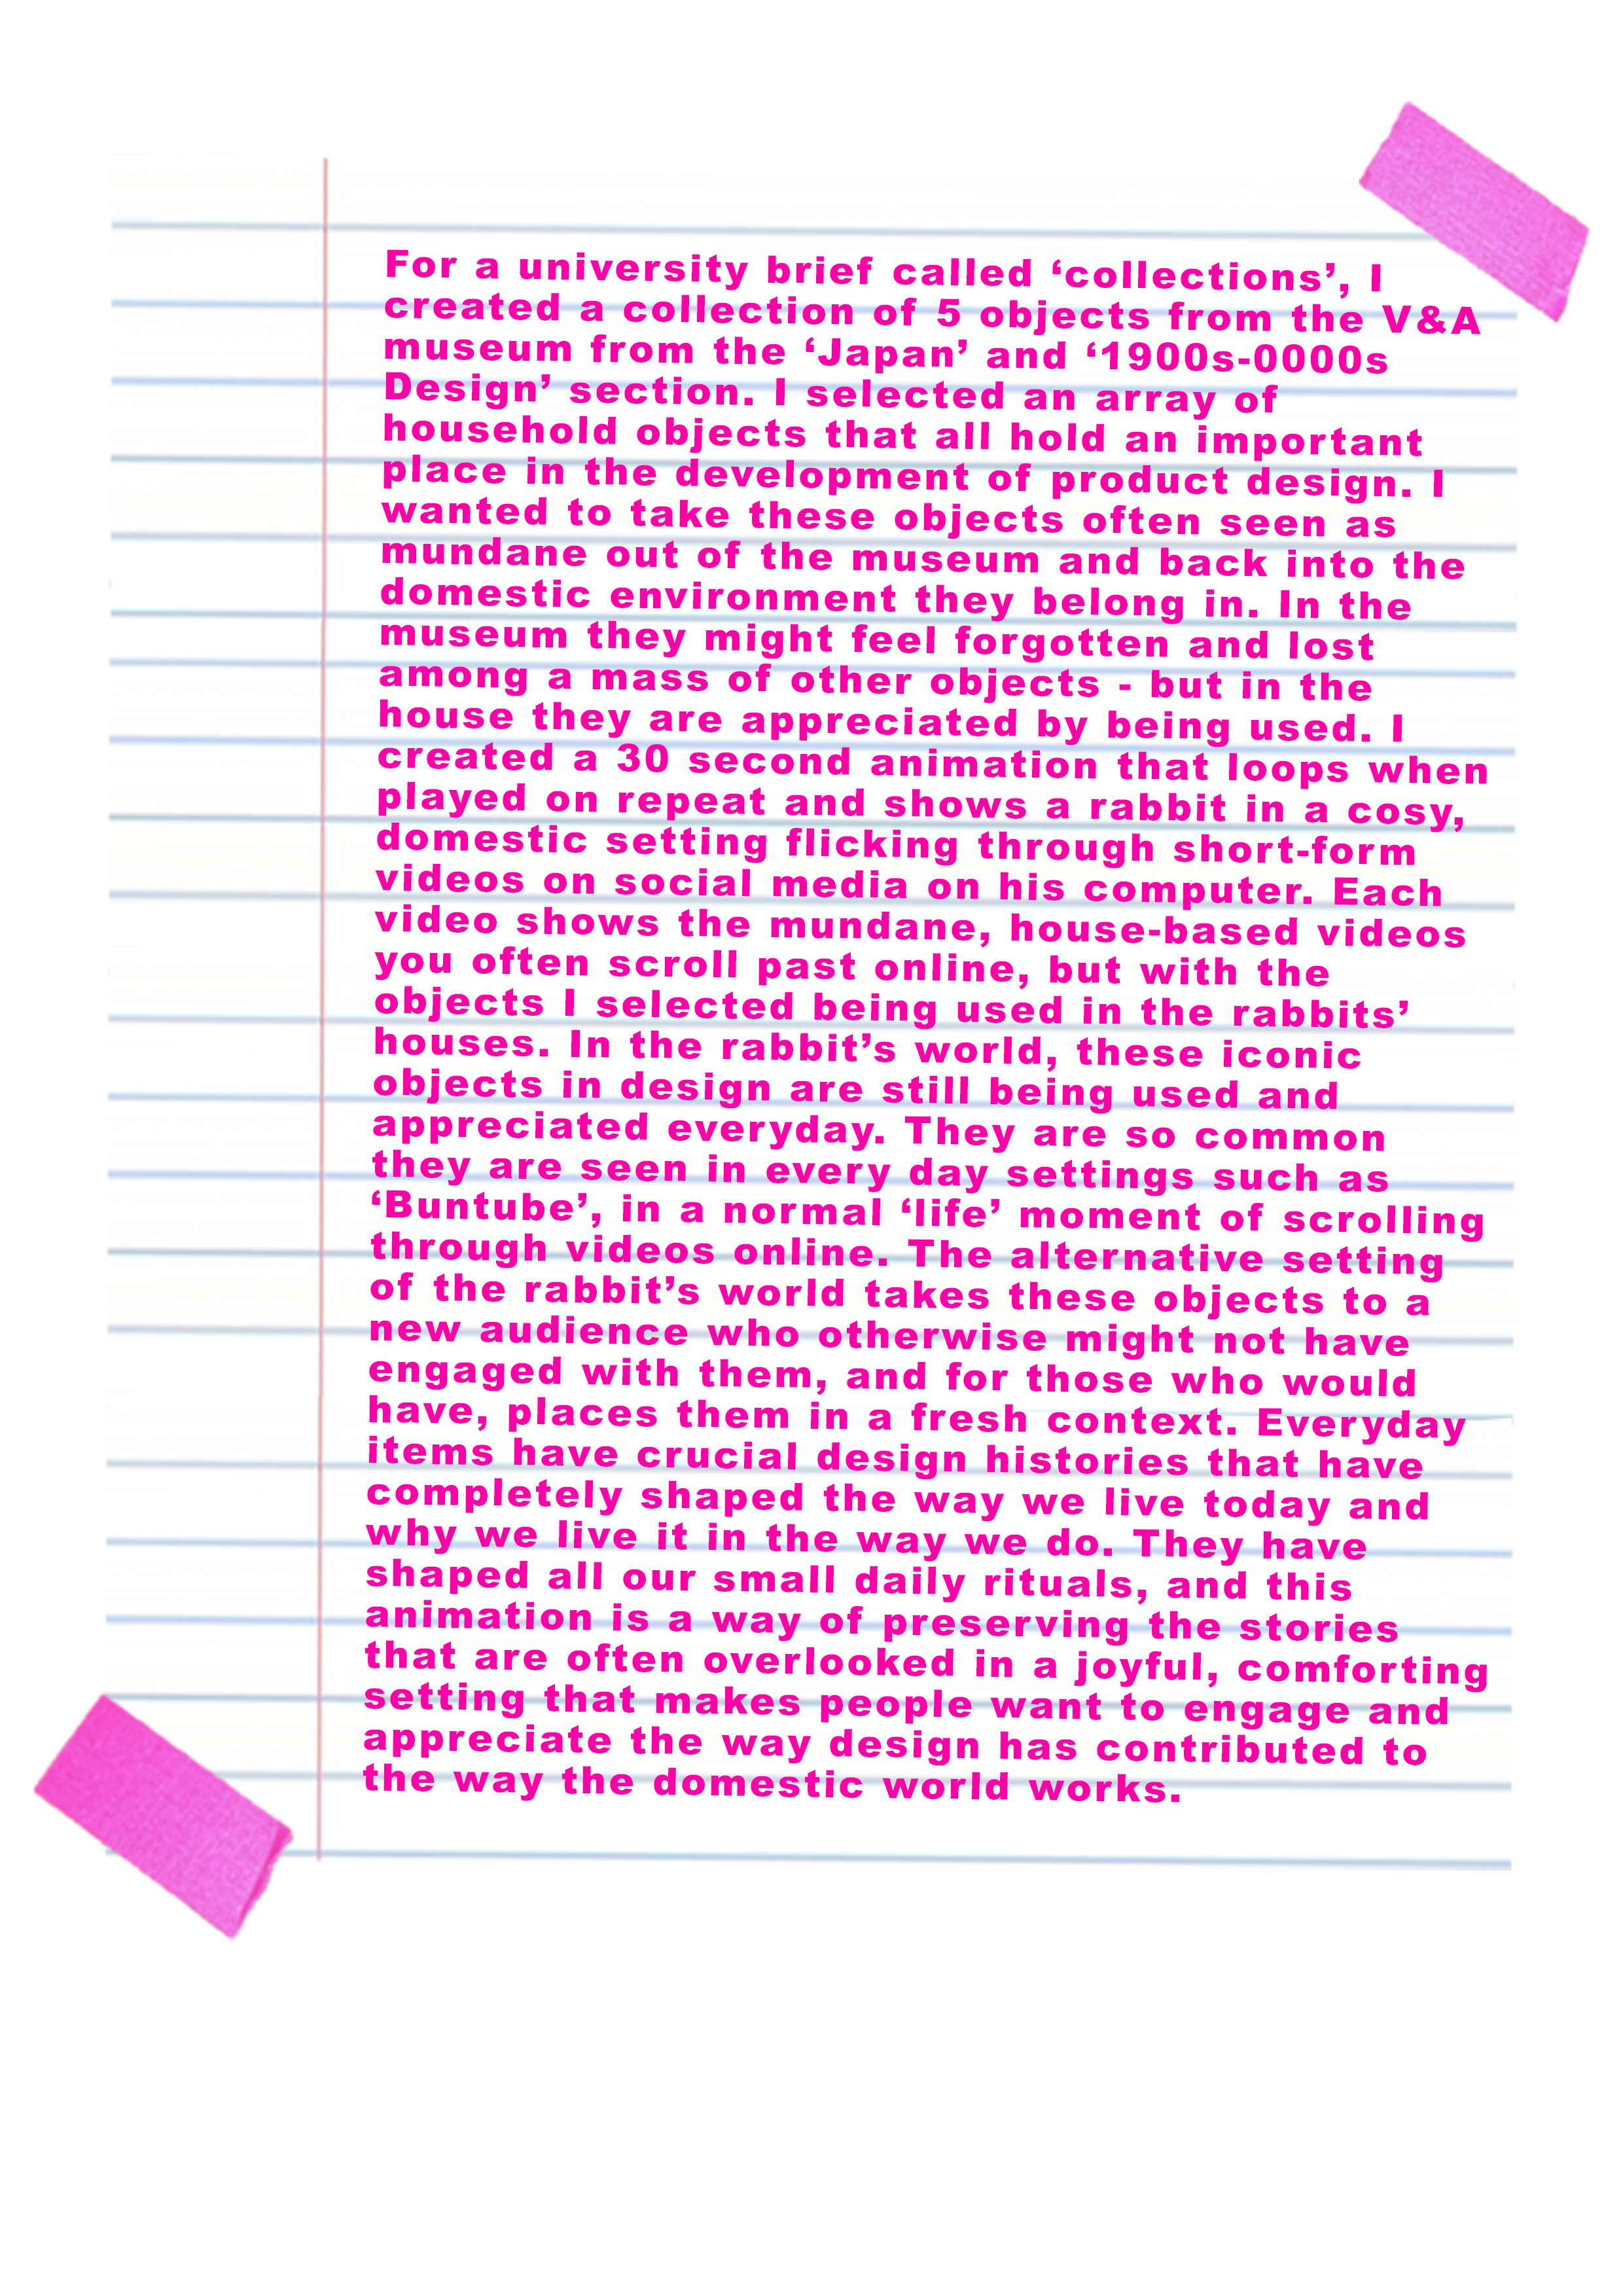 For a university brief called ‘collections’, I
created a collection of 5 objects from the V&A
museum from the ‘Japan’ and ‘1900s-0000s
Design’ section. I selected an array of
household objects that all hold an important
place in the development of product design. I
wanted to take these objects often seen as
mundane out of the museum and back into the
domestic environment they belong in. In the
museum they might feel forgotten and lost
among a mass of other objects - but in the
house they are appreciated by being used. I
created a 30 second animation that loops when
played on repeat and shows a rabbit in a cosy,
domestic setting flicking through short-form
videos on social media on his computer. Each
video shows the mundane, house-based videos
you often scroll past online, but with the
objects I selected being used in the rabbits’
houses. In the rabbit’s world, these iconic
objects in design are still being used and
appreciated everyday. They are so common
they are seen in every day settings such as
‘Buntube’, in a normal ‘life’ moment of scrolling
through videos online. The alternative setting
of the rabbit’s world takes these objects to a
new audience who otherwise might not have
engaged with them, and for those who would
have, places them in a fresh context. Everyday
items have crucial design histories that have
completely shaped the way we live today and
why we live it in the way we do. They have
shaped all our small daily rituals, and this
animation is a way of preserving the stories
that are often overlooked in a joyful, comforting
setting that makes people want to engage and
appreciate the way design has contributed to
the way the domestic world works.